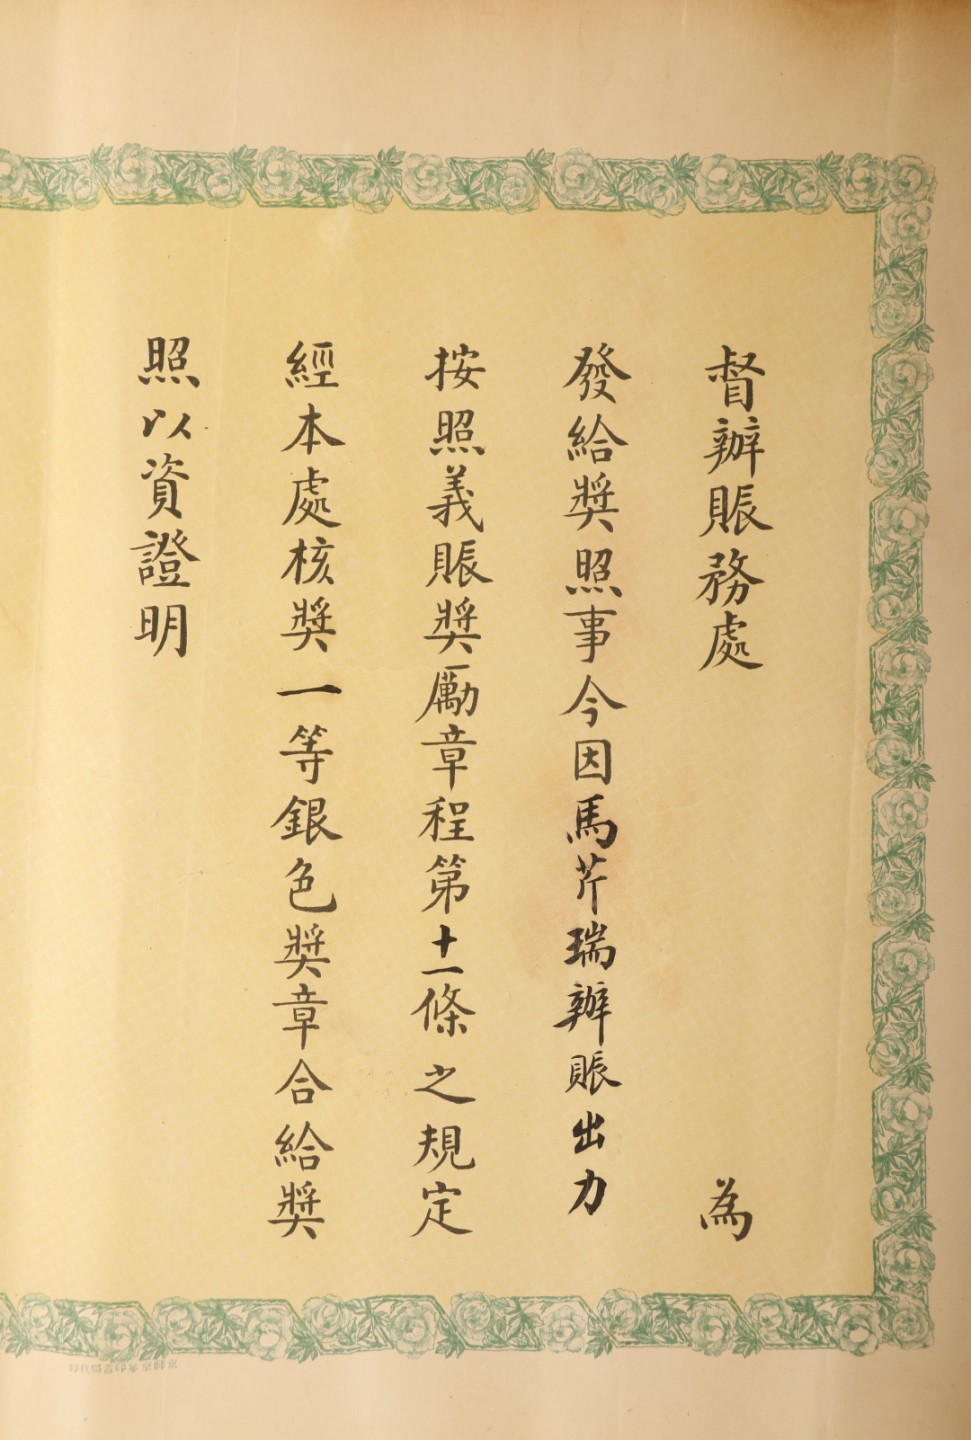 督辦賑務處　為
發給獎照事今因馬芹瑞辦賑出力
按照義賑獎勵章程第十一條之規定
經本處核獎一等銀色獎章合給獎
照以資證明